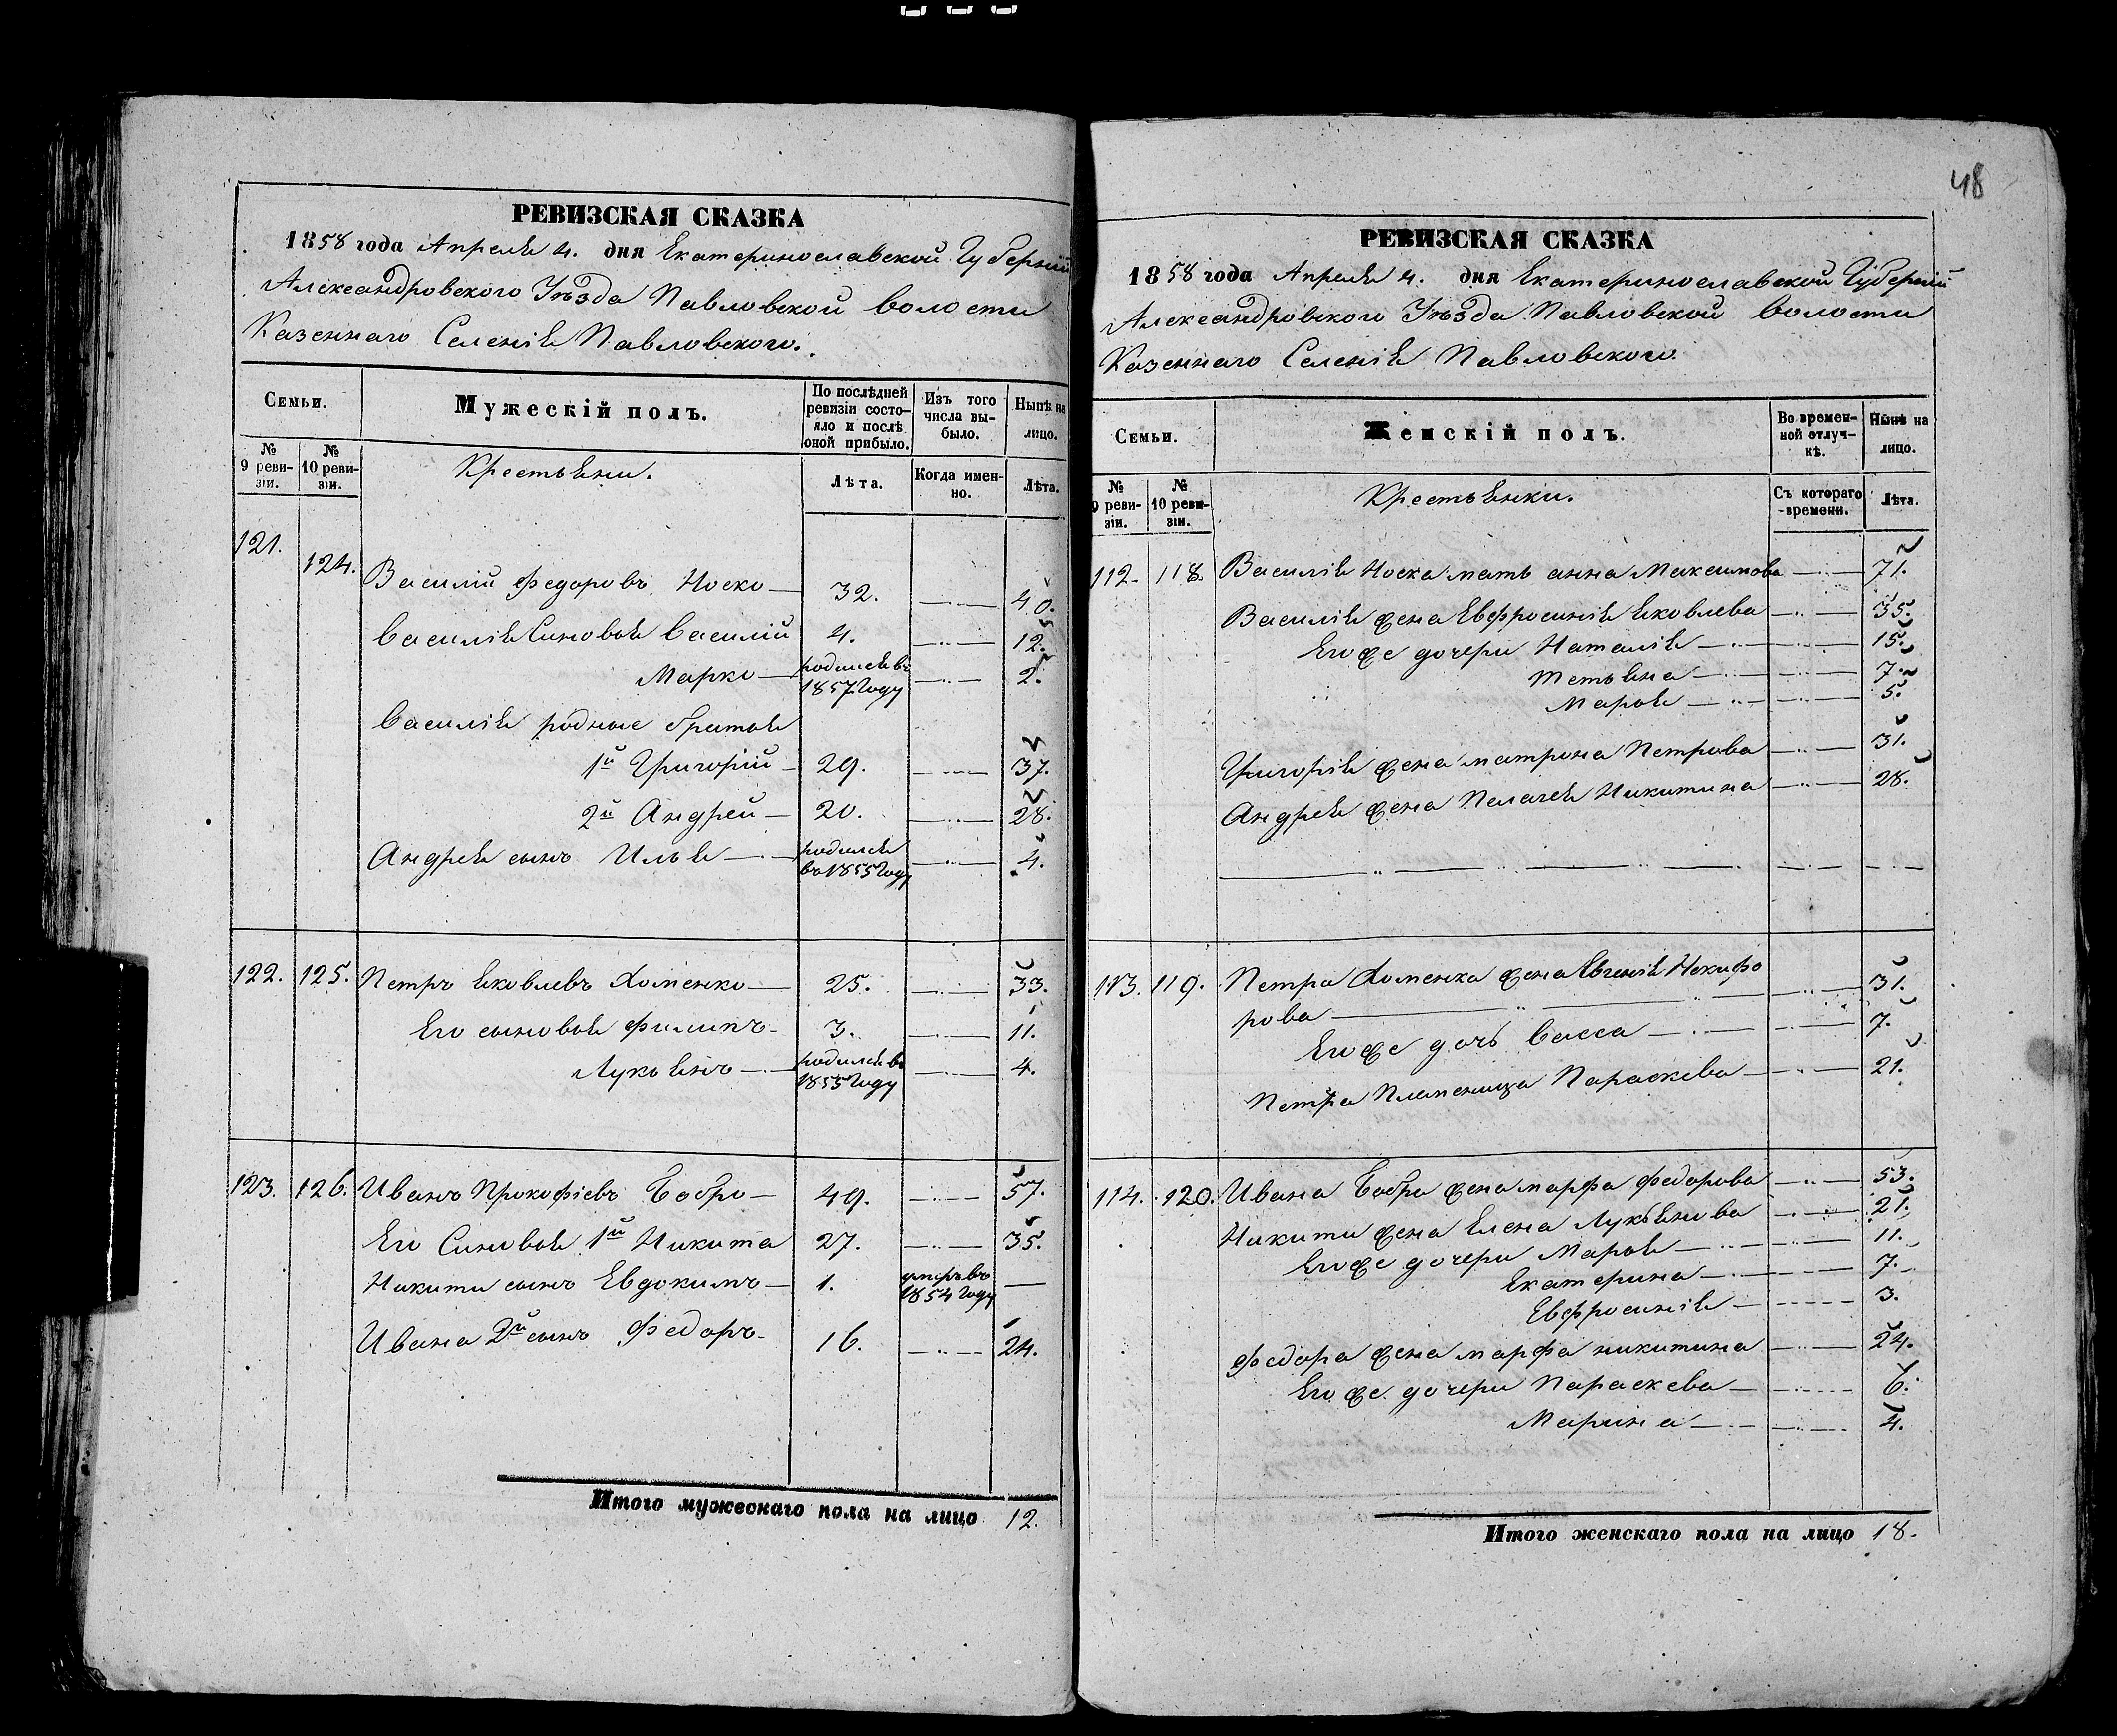 РЕВИЗСКАЯ СКАЗКА
1858 года Апреля 4. дня Екатеринославской Губерніи
Александровского Уѣзда Павловской волости
Казеннаго Селенія Павловского.
Семьи.
Мужескій полъ.
По послѣдней ревизіи состояло и послѣ оной прибыло.
Изъ того числа выбыло.
Нынѣ на лицо.
№ 9 ревизіи.
№ 10 ревизіи.
Крестьяни.
Лѣта.
Когда именно.
Лѣта.
121.
124. Василій Федоровъ Носко 32. 40.
Василія Сыновья Василій 4. 12.
Марко родился въ 1857 Году 2.
Василія родные братья
1й Григорій 29. 37.
2й Андрей 20. 28.
Андрея сынъ Илья родился въ 1855 Году 4.
122. 125. Петръ Яковлевъ Хоменко 25. 33.
Его сыновья Филипъ 3. 11.
Лукьянъ родился въ 1855 Году 4.
123. 126. Иванъ Прокофіевъ Бобро 49. 57.
Его Сыновья 1й Никита 27. 35.
Никиты сынъ Евдокимъ 1. умеръ въ 1854 Году
Ивана 2й сынъ Федоръ 16. 24.
Итого мужескаго пола на лицо 12.
48
РЕВИЗСКАЯ СКАЗКА
1858 года Апреля 4. дня Екатеринославской Губерніи
Александровского Уѣзда Павловской волости
Казеннаго Селенія Павловского.
Семьи.
Женскій полъ.
Во временной отлучкѣ.
Нынѣ на лицо.
№ 9 ревизіи.
№ 10 ревизіи.
Крестьянки.
Съ котораго времени.
Лѣта.
112. 118. Василія Носка мать анна Максимова 71.
Василія жена Евфросинія Яковлева 35.
Его же дочери Наталія 15.
Тетьяна 7.
Марья 5.
Григорія жена матрона Петрова 31.
Андрея жена Пелагея Никитина 28.
113. 119. Петра Хоменка жена Евгенія Некифо
рова 31.
Его же дочь Васса 7.
Петра Племеница Параскева 21.
114. 120. Ивана Бобра жена марфа Федорова 53.
Никиты жена Елена Лукьянова 21.
Его же дочери Марья 11.
Екатерина 7.
Евфросинія 3.
Федора жена марфа никитина 24.
Его же дочери Параскева 6.
Марина 4.
Итого женскаго пола на лицо 18.